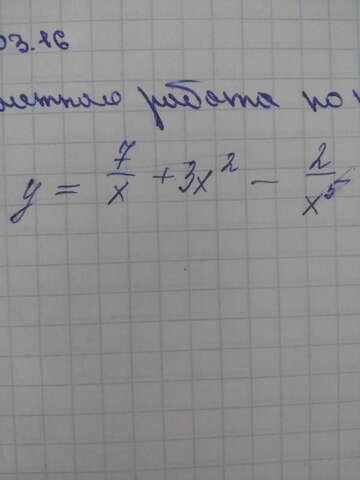 03.16
работа по
y = 7/x + 3x² - 2/x⁵